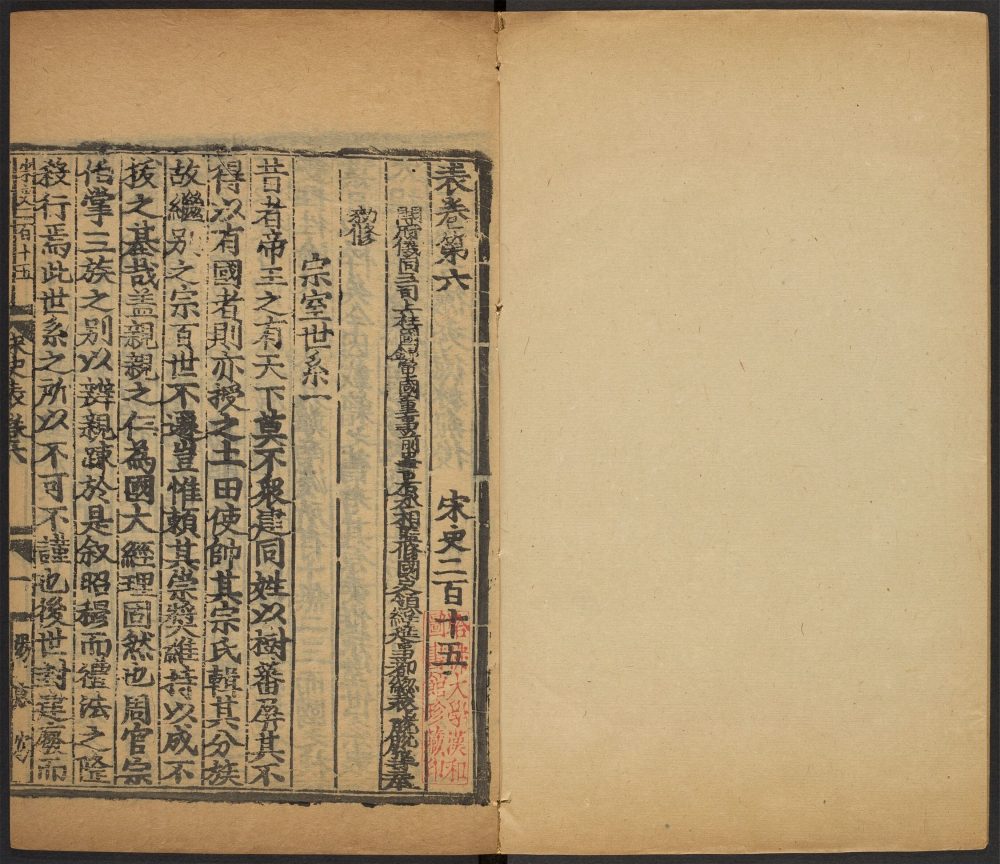 表卷第六 宋史二百十五
開府儀同三司上柱國錄軍國重事前中書右丞相監修國史領經筵事都總裁臣脫脫等奉
勑修
宗室世系一
昔者帝王之有天下莫不衆建同姓以樹蕃屏其不
得以有國者則亦授之土田使帥其宗氏輯其分族
故繼別之宗百世不遷豈惟賴其崇奬維持以成不
拔之基哉盖親親之仁為國大經理固然也周官宗
伯掌三族之别以辨親踈於是叙昭穆而禮法之隆
殺行焉此世系之所以不可不謹也後世封建廢而
宋史二百十五 宋史表卷六 一
哈佛大學漢和
圖書館珍藏印